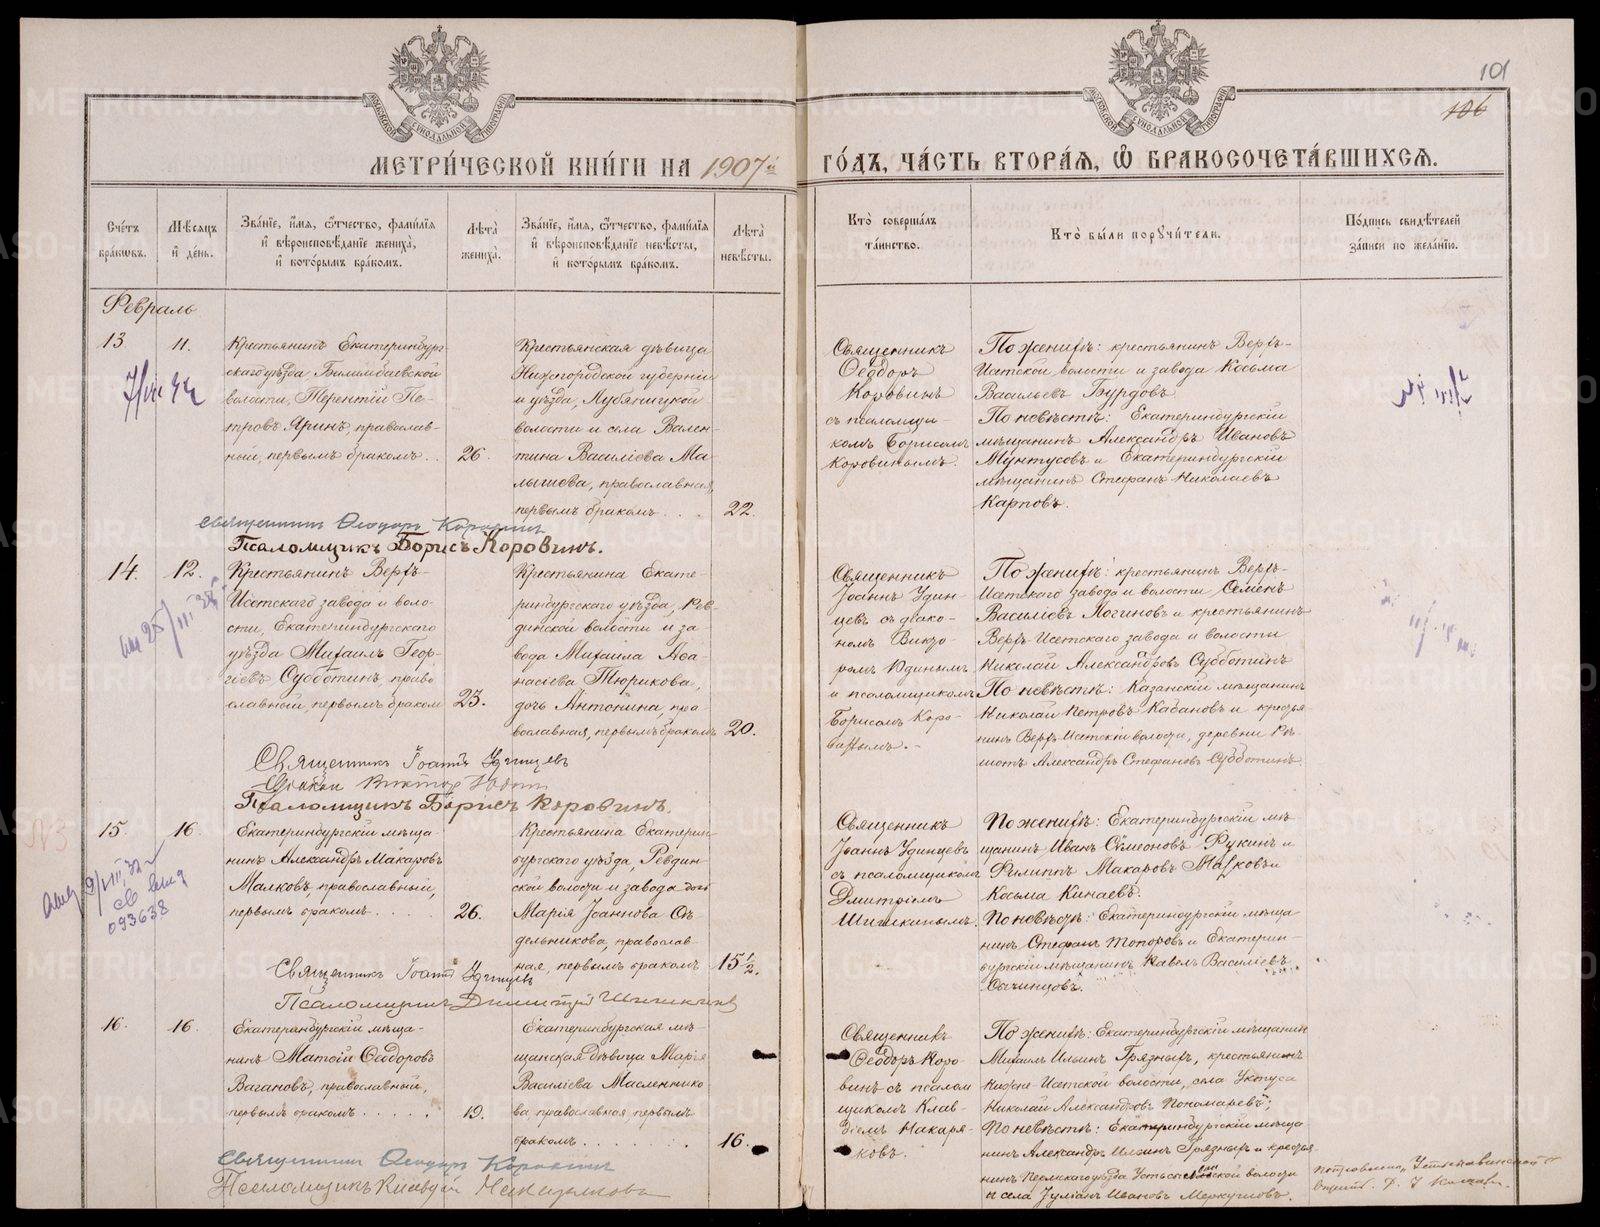 101
106
МЕТРИ́ЧЕСКОЙ КНИ́ГИ НА 1907й ГО́ДЪ, ЧА́СТЬ ВТОРА́Я, Ѡ БРАКОСОЧЕТА́ВШИХСЯ.
Сче́тъ бра́ковъ.
Мѣ́сяцъ и́ де́нь.
Зва́нїе, и́мя, ѻ́тчество, фами́лїя и́ вѣроисповѣ́данїе жениха̀, и́ кото́рымъ бра́комъ.
Лѣ́та жениха̀.
Зва́нїе, и́мя, ѻ́тчество, фами́лїя и́ вѣроисповѣ́данїе невѣ́сты, и́ кото́рымъ бра́комъ.
Лѣ́та невѣ́сты.
Кто̀ соверша́лъ та́инство.
Кто̀ бы́ли поручи́тели.
По́дпись свидѣ́телей за́писи по жела́нїю.
Февраль
13.
11.
Крестьянинъ Екатеринбург-
скаго уѣзда Билимбаевской
волости, Терентій Пе-
тровъ Яринъ, православ-
ный, первымъ бракомъ..
26.
Крестьянская дѣвица
Нижегородской губерніи
и уѣзда, Лубяницкой
волости и села Вален-
тина Василіева Ма-
лышева, православная,
первымъ бракомъ...
22.
Священникъ
Ѳеодоръ
Коровинъ
съ псаломщи-
комъ Борисомъ
Коровинымъ.
По женихѣ: крестьянинъ Верхъ-
Исетской волости и завода Косьма
Васильевъ Бурдовъ.
По невѣстѣ: Екатеринбургскій
мѣщанинъ Александръ Ивановъ
Мунтусовъ и Екатеринбургскій
мѣщанинъ Стефанъ Николаевъ
Карповъ.
Священникъ Ѳеодоръ Коровинъ
Псаломщикъ Борисъ Коровинъ.
14.
12.
Крестьянинъ Верхъ-
Исетскаго завода и воло-
сти, Екатеринбургскаго
уѣзда Михаилъ Геор-
гіевъ Субботинъ, право
славный, первымъ бракомъ
23.
Крестьянина Екате-
ринбургскаго уѣзда, Рев-
динской волости и за-
вода Михаила Аѳа-
насіева Тюрикова,
дочь Антонина, пра-
вославная, первымъ бракомъ
20.
Священникъ
Іоаннъ Удин-
цевъ съ діако-
номъ Викто-
ромъ Юдинымъ
и псаломщикомъ
Борисомъ Коро-
винымъ.-
По женихѣ: крестьянинъ Верхъ-
Исетскаго завода и волости, Семенъ
Василіевъ Логиновъ и крестьянинъ
Верхъ Исетскаго завода и волости
Николай Александровъ Субботинъ
По невѣстѣ: Казанскій мѣщанинъ
Николай Петровъ Кабановъ и крестья
нинъ Верхъ-Исетской волости, деревни Рѣ-
шотъ Александръ Стефановъ Субботинъ.
Священникъ Іоаннъ Удинцевъ
Діаконъ Викторъ Юдинъ
Псаломщикъ Борисъ Коровинъ.
15.
16.
Екатеринбургскій мѣща-
нинъ Александръ Макаровъ
Малковъ, православный,
первымъ бракомъ....
26.
Крестьянина Екатерин-
бургскаго уѣзда, Ревдин-
ской волости и завода дочь
Марія Іоаннова Сѣ-
дельникова, православ-
ная, первымъ бракомъ
15 1/2.
Священникъ
Іоаннъ Удинцевъ
съ псаломщикомъ
Дмитріемъ
Шишкинымъ.
По женихѣ: Екатеринбургскій мѣ
щанинъ Иванъ Симеоновъ Фукинъ и
Филиппъ Макаровъ Малковъ и
Косьма Кинаевъ.
По невѣстѣ: Екатеринбургскій мѣща
нинъ Стефанъ Топоровъ и Екатерин-
бургскій мѣщанинъ Павелъ Василіевъ
Священникъ Іоаннъ Удинцевъ
Псаломщикъ Димитрій Шишкинъ
093638
16.
16.
Екатеринбургскій мѣща-
нинъ Матѳій Сидоровъ
Вагановъ, православный,
первымъ бракомъ.....
19.
Екатеринбургская мѣ-
щанская дѣвица Марія
Василіева Масленнико
ва, православная, первымъ
бракомъ.......
16.
Священникъ
Ѳеодоръ Коро-
винъ съ псалом
щикомъ Клав-
діемъ Макаря-
ковъ.
По женихѣ: Екатеринбургскій мѣщанинъ
Михаилъ Ильинъ Грязныхъ, крестьянинъ
Нижне-Исетской волости, села Уктуса
Николай Александровъ Пономаревъ;
По невѣстѣ: Екатеринбургскій мѣща
нинъ Александръ Ильинъ Грязныхъ и крестья-
нинъ Пермскаго уѣзда волости
и села Іуліанъ Ивановъ Меркушовъ.
Священникъ Ѳеодоръ Коровинъ
Псаломщикъ Клавдій